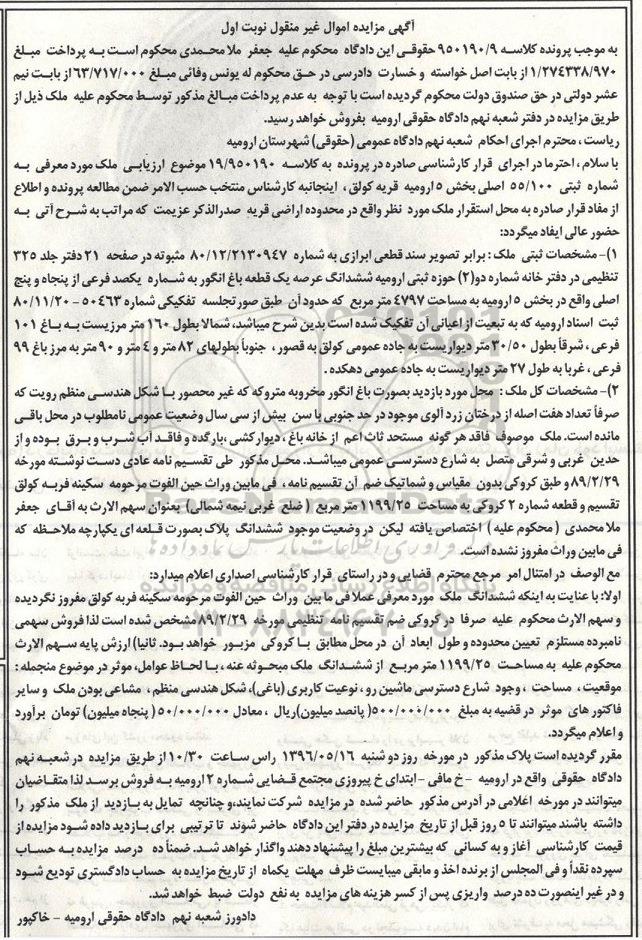 آگهی مزایده اموال غیر منقول نوبت اول
به موجب پرونده کلاسه ۹۵۰۱۹۰/۹ حقوقی این دادگاه محکوم علیه جعفر ملا محمدی محکوم است به پرداخت مبلغ
۱/۲۷۴۳۳۸/۹۷۰ از بابت اصل خواسته و خسارت دادرسی در حق محکوم له یونس وفائی مبلغ ۶۳/۷۱۷/۰۰۰ از بابت نیم
عشر دولتی در حق صندوق دولت محکوم گردیده است با توجه به عدم پرداخت مبالغ مذکور توسط محکوم علیه ملک ذیل از
طریق مزایده در دفتر شعبه نهم دادگاه حقوقی ارومیه بفروش خواهد رسید.
ریاست ، محترم اجرای احکام شعبه نهم دادگاه عمومی (حقوقی) شهرستان ارومیه
با سلام ، احتراما در اجرای قرار کارشناسی صادره در پرونده به کلاسه ۱۹/۹۵۰۱۹۰ موضوع ارزیابی ملک مورد معرفی به
شماره ثبتی ۵۵/۱۰۰ اصلی بخش ۵ ارومیه قریه کولق ، اینجانبه کارشناس منتخب حسب الامر ضمن مطالعه پرونده و اطلاع
از مفاد قرار صادره به محل استقرار ملک مورد نظر واقع در محدوده اراضی قریه صدرالذکر عزیمت که مراتب به شرح آتی به
حضور عالی ایفاد میگردد:
۱)- مشخصات ثبتی ملک : برابر تصویر سند قطعی ابرازی به شماره ۸۰/۱۲/۲۱۳۰۹۴۷ مثبوته در صفحه ۲۱ دفتر جلد ۳۲۵
تنظیمی در دفتر خانه شماره دو(۲) حوزه ثبتی ارومیه ششدانگ عرصه یک قطعه باغ انگور به شماره یکصد فرعی از پنجاه و پنج
اصلی واقع در بخش ۵ ارومیه به مساحت ۴۷۹۷ متر مربع که حدود آن طبق صور تجلسه تفکیکی شماره ۵۰۴۶۳ - ۸۰/۱۱/۲۰
ثبت اسناد ارومیه که به تبعیت از اعیانی آن تفکیک شده است بدین شرح میباشد، شمالا بطول ۱۶۰ متر مرزیست به باغ ۱۰۱
فرعی ، شرقاً بطول ۳۰/۵۰ متر دیواریست به جاده عمومی کولق به قصور ، جنوباً بطولهای ۸۲ متر و ۴ متر و ۹۰ متر به مرز باغ ۹۹
فرعی ، غربا به طول ۲۷ متر دیواریست به جاده عمومی دهکده .
۲)- مشخصات کل ملک : محل مورد بازدید بصورت باغ انگور مخروبه متروکه که غیر محصور با شکل هندسی منظم رویت که
صرفاً تعداد هفت اصله از درختان زرد آلوی موجود در حد جنوبی با سن بیش از سی سال وضعیت عمومی نامطلوب در محل باقی
مانده است. ملک موصوف فاقد هر گونه مستحد ثات اعم از خانه باغ ، دیوار کشی ،بارگده و فاقد آب شرب و برق بوده و از
حدین غربی و شرقی متصل به شارع دسترسی عمومی میباشد. محل مذکور طی تقسیم نامه عادی دست نوشته مورخه
۸۹/۲/۲۹ و طبق کروکی بدون مقیاس و شماتیک ضم آن تقسیم نامه ، فی مابین وراث حین الفوت مرحومه سکینه فربه کولق
تقسیم و قطعه شماره ۲ کروکی به مساحت ۱۱۹۹/۲۵ متر مربع ( ضلع غربی نیمه شمالی) بعنوان سهم الارث به آقای جعفر
ملا محمدی ( محکوم علیه ) اختصاص یافته لیکن در وضعیت موجود ششدانگ پلاک بصورت قلعه ای یکپارچه ملاحظه که
فی مابین وراث مفروز نشده است.
مع الوصف در امتثال امر مرجع محترم قضایی و در راستای قرار کارشناسی اصداری اعلام میدارد:
اولا: با عنایت به اینکه ششدانگ ملک مورد معرفی عملا فی ما بین وراث حین الفوت مرحومه سکینه فربه کولق مفروز نگردیده
و سهم الارث محکوم علیه صرفا در کروکی ضم تقسیم نامه تنظیمی مورخه ۸۹/۲/۲۹ مشخص شده است لذا فروش سهمی
نامبرده مستلزم تعیین محدوده و طول ابعاد آن در محل مطابق با کروکی مزبور خواهد بود. ثانیا) ارزش پایه سهم الارث
محکوم علیه به مساحت ۱۱۹۹/۲۵ متر مربع از ششدانگ ملک مبحوثه عنه ، با لحاظ عوامل، موثر در موضوع منجمله :
موقعیت ، مساحت ، وجود شارع دسترسی ماشین رو ، نوعیت کاربری (باغی)، شکل هندسی منظم ، مشاعی بودن ملک و سایر
فاکتور های موثر در قضیه به مبلغ ۵۰۰/۰۰۰/۰۰۰( پانصد میلیون)ریال ، معادل ۵۰/۰۰۰/۰۰۰( پنجاه میلیون) تومان برآورد
و اعلام میگردد.
مقرر گردیده است پلاک مذکور در مورخه روز دو شنبه ۱۳۹۶/۰۵/۱۶ راس ساعت ۱۰/۳۰ از طریق مزایده در شعبه نهم
دادگاه حقوقی واقع در ارومیه - خ مافی - ابتدای خ پیروزی مجتمع قضایی شماره ۲ ارومیه به فروش برسد لذا متقاضیان
میتوانند در مورخه اعلامی در آدرس مذکور حاضر شده در مزایده شرکت نمایند،و چنانچه تمایل به بازدید از ملک مذکور را
داشته باشند میتوانند تا ۵ روز قبل از تاریخ مزایده در دفتر این دادگاه حاضر شوند تا ترتیبی برای بازدید داده شود مزایده از
قیمت کارشناسی آغاز و به کسانی که بیشترین مبلغ را پیشنهاد دهند واگذار خواهد شد. ضمناً ده درصد مزایده به حساب
سپرده نقداً و فی المجلس از برنده اخذ و مابقی میبایست ظرف مهلت یکماه از تاریخ مزایده به حساب دادگستری تودیع شود
و در غیر اینصورت ده درصد واریزی پس از کسر هزینه های مزایده به نفع دولت ضبط خواهد شد.
دادورز شعبه نهم دادگاه حقوقی ارومیه - خاکپور